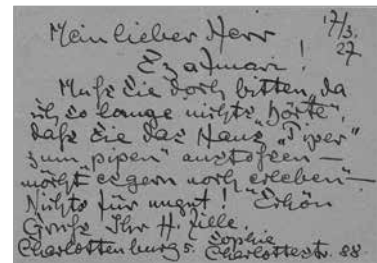 Mein lieber Herr 17/3.
Szatmari! 27
Muß Sie doch bitten, da
ich so lange nichts „hörte“,
daß Sie das Haus „Piper“
zum „pipen“ anstoßen —
möcht' es gern noch erleben —
Nichts für ungut! Schön
Gruß Ihr H. Zille.
Charlottenburg 5. Sophie
Charlottestr. 88.